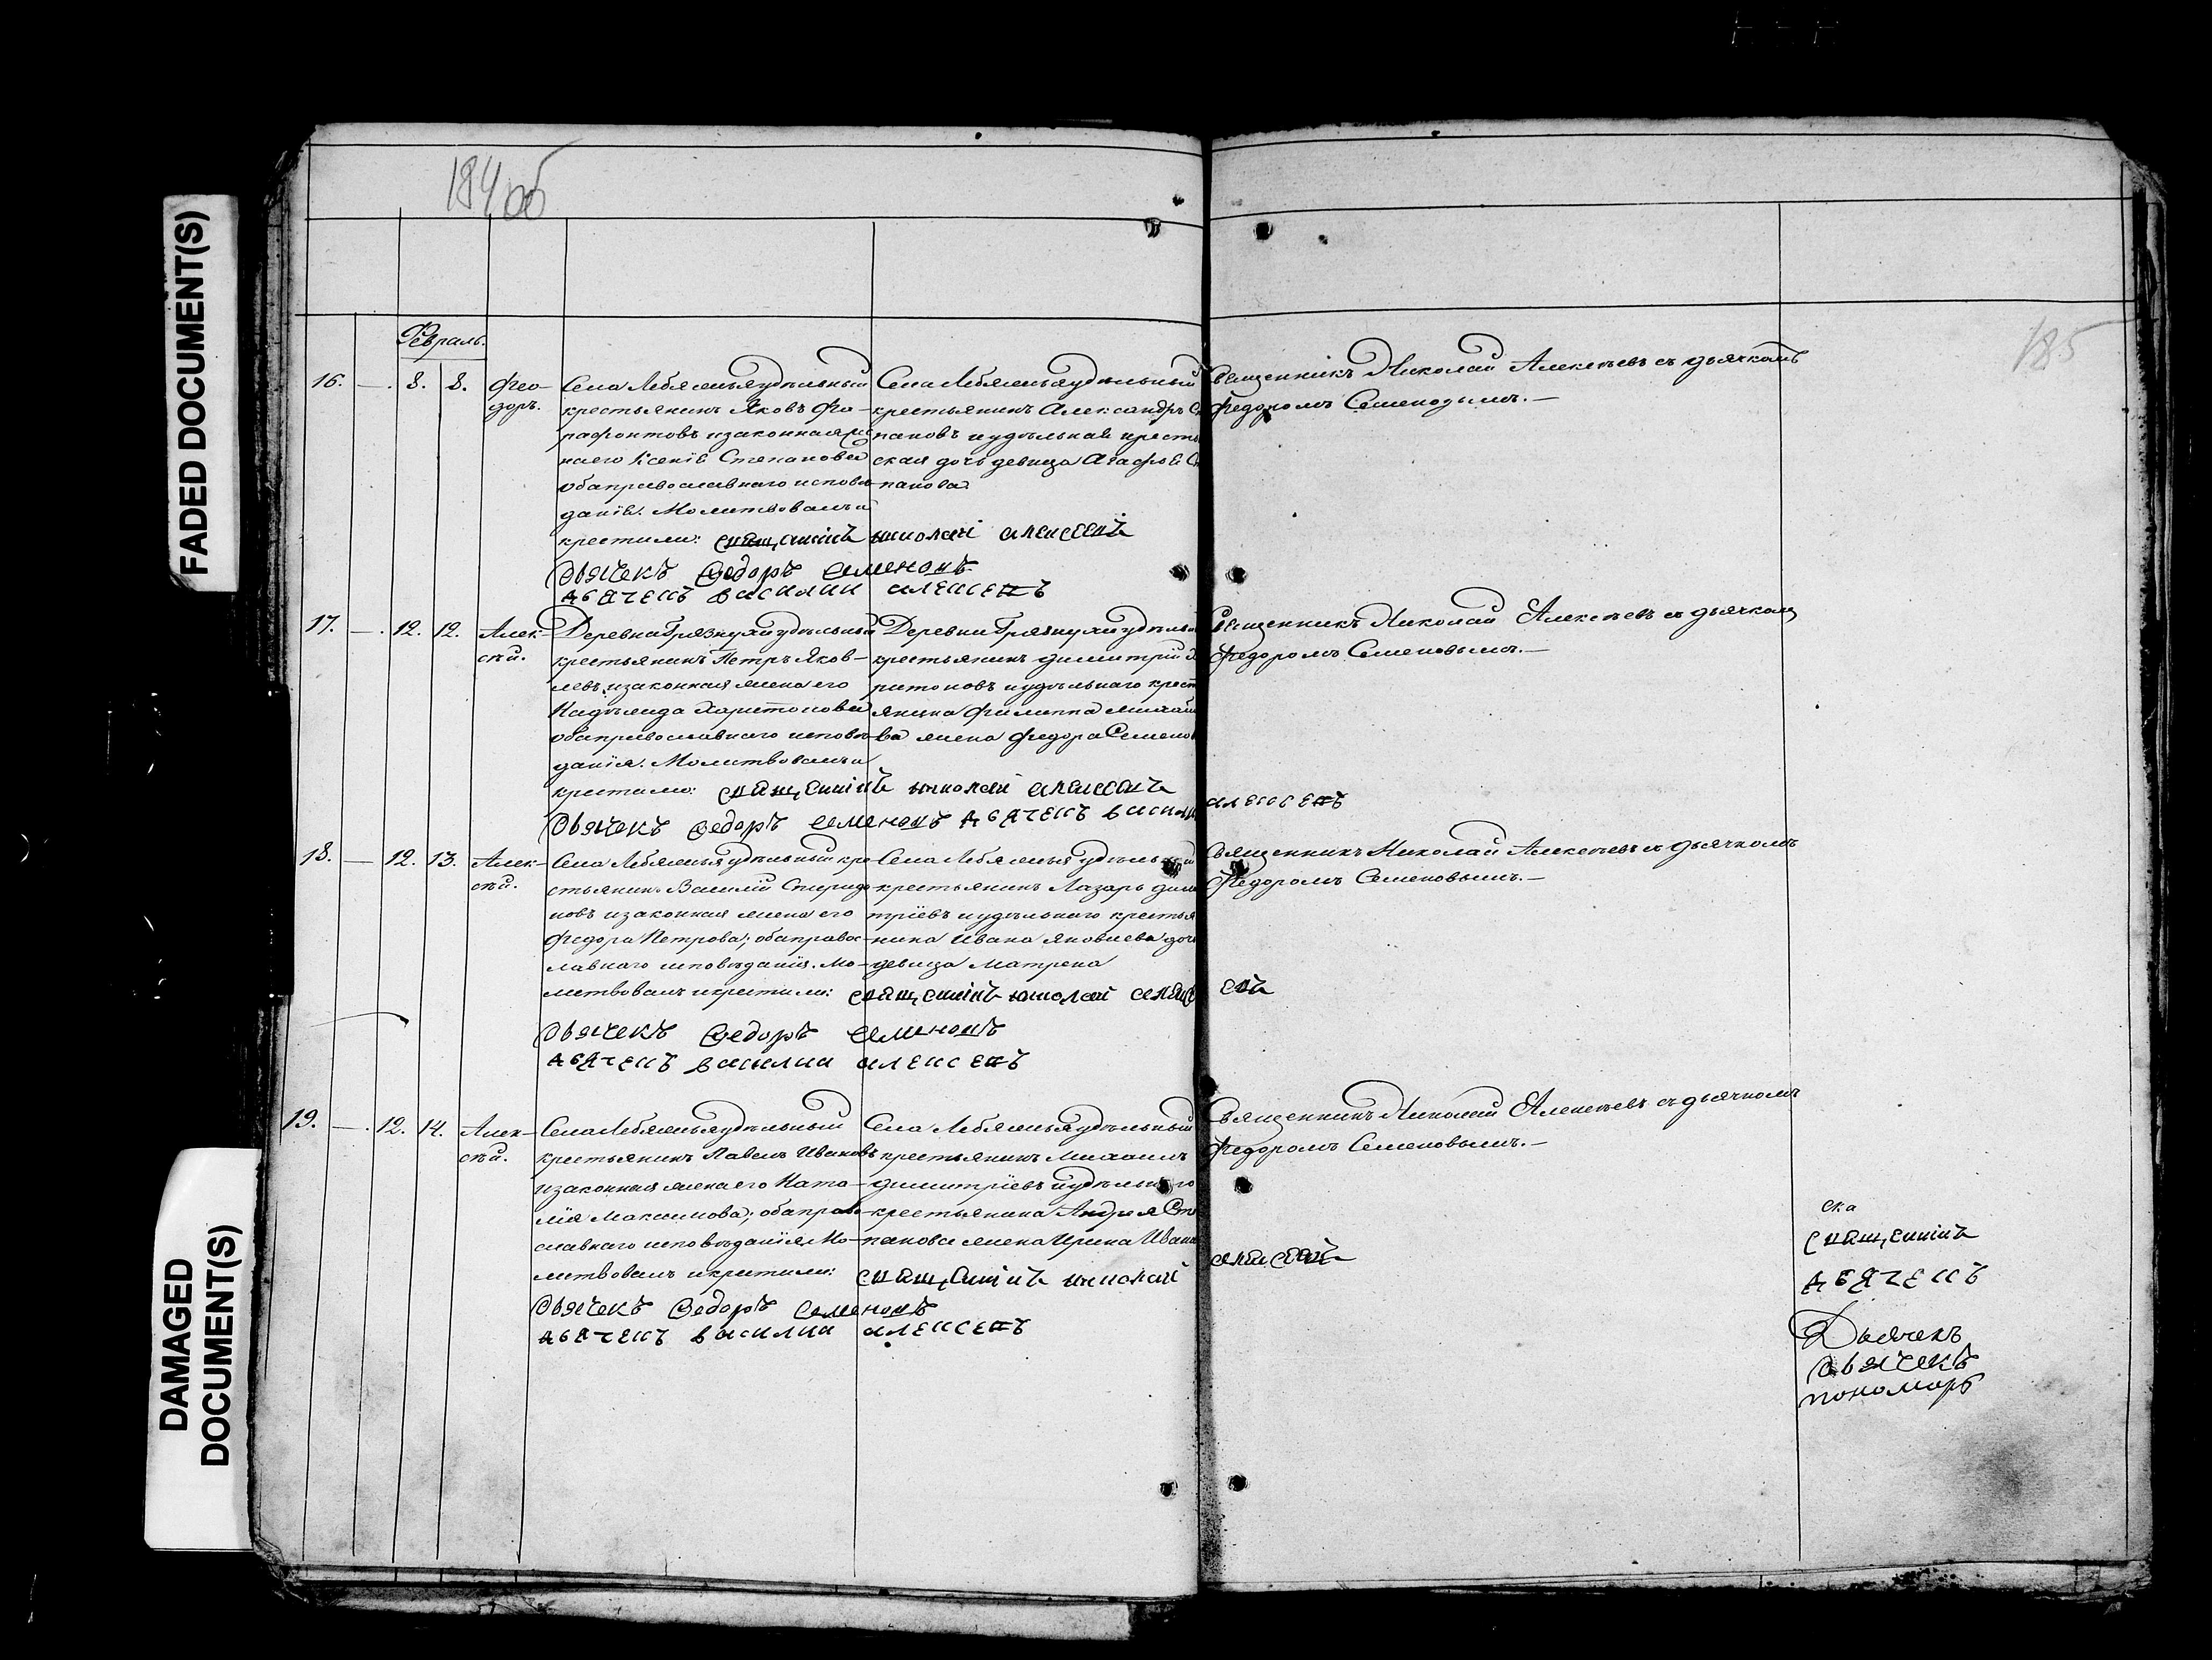 FADED DOCUMENT(S)
DAMAGED
DOCUMENT(S)
184 об
185
Февраль.
16. — . 8. 8.
Ѳео-
доръ.
Села Лебяжья удѣльный
крестьянинъ Яковъ
и законная
его Ксенія Степанова
оба православнаго исповѣ-
данія. Молитвовалъ и
крестили: священникъ николай алексеевъ
Дьячекъ Федоръ Семеновъ
дьяченъ василии алексевъ
Села Лебяжья удѣльный
крестьянинъ Александръ С
пановъ и удѣльная кресть
ская дочь девица Агафія С
панова
Священникъ Николай Алексѣевъ съ дьячкомъ
Федоромъ Семеновымъ. —
17. — . 12. 12.
Алек-
сѣй.
Деревни Грязнухи удѣльный
крестьянинъ Петръ Яков-
левъ и законная жена его
Надѣжда Харитонова
оба православнаго исповѣ-
данія. Молитвовалъ и
крестили: священникъ николай алексеевъ
Дьячекъ Федоръ Семеновъ дьяченъ васили алексевъ
Деревни Грязнухи удѣльн
крестьянинъ Димитрій Ха
ритоновъ и удѣльнаго крест
янина Филиппа Михайло
ва жена Федора Семено
Священникъ Николай Алексѣевъ съ дьячкомъ
Федоромъ Семеновымъ. —
18. — 12. 13.
Алек-
сѣй.
Села Лебяжья удѣльный кре-
стьянинъ Василій Спиридо-
новъ и законная жена его
Федора Петрова; оба право-
лавнаго исповѣданія. Мо-
литвовалъ и крестили: священникъ николай алексеевъ
Дьячекъ Федоръ Семеновъ
дьяченъ василии алексевъ
Села Лебяжья удѣльный
крестьянинъ Лазарь Дими
тріевъ и удѣльнаго крестья
нина Ивана Яковлева дочь
девица Матрена
Священникъ Николай Алексѣевъ съ дьячкомъ
Федоромъ Семеновымъ. —
19. — . 12. 14.
Алек-
сѣй.
Села Лебяжья удѣльный
крестьянинъ Павелъ Ивановъ
и законная жена его Ната-
лія Максимова; оба право-
славнаго исповѣданія Мо-
литвовалъ и крестили: священникъ николай алексеевъ
Дьячекъ Федоръ Семеновъ
дьяченъ василии алексевъ
Села Лебяжья удѣльный
крестьянинъ Михаилъ
Димитріевъ и удѣльнаго
крестьянина Андрея Сте
панова жена Ирина Ивано
Священникъ Николай Алексѣевъ съ дьячкомъ
Федоромъ Семеновымъ. —
ска
священникъ
дьяченъ
Дьячекъ
Дьячекъ
пономорь